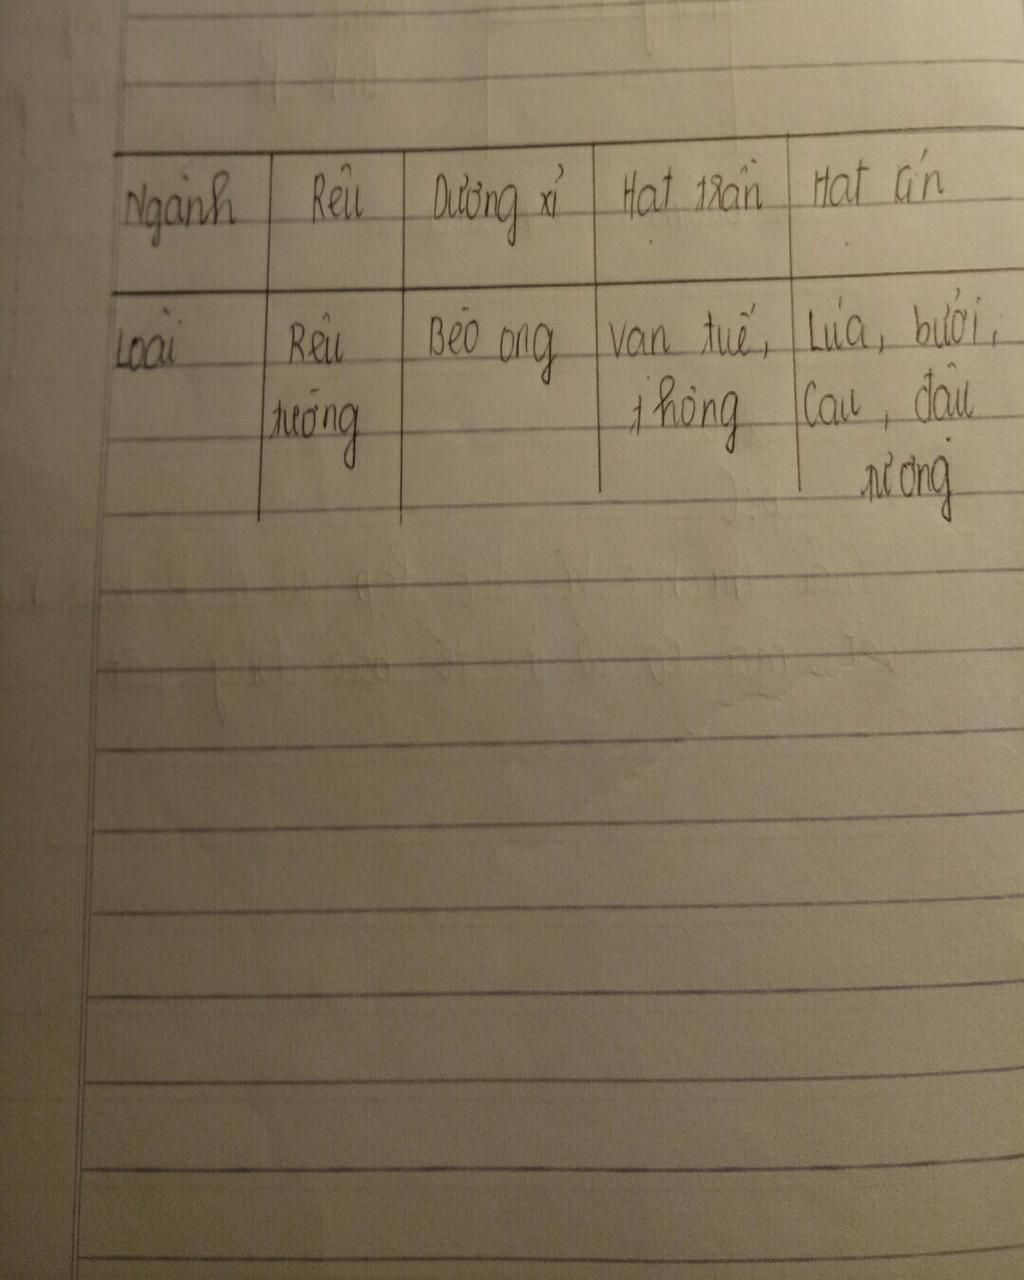 Ngành Rêu Dương xỉ Hạt trần Hạt kín
Loài Rêu Bèo ong Vạn tuế, Lúa, bưởi,
tường thông Cau, đậu
tương